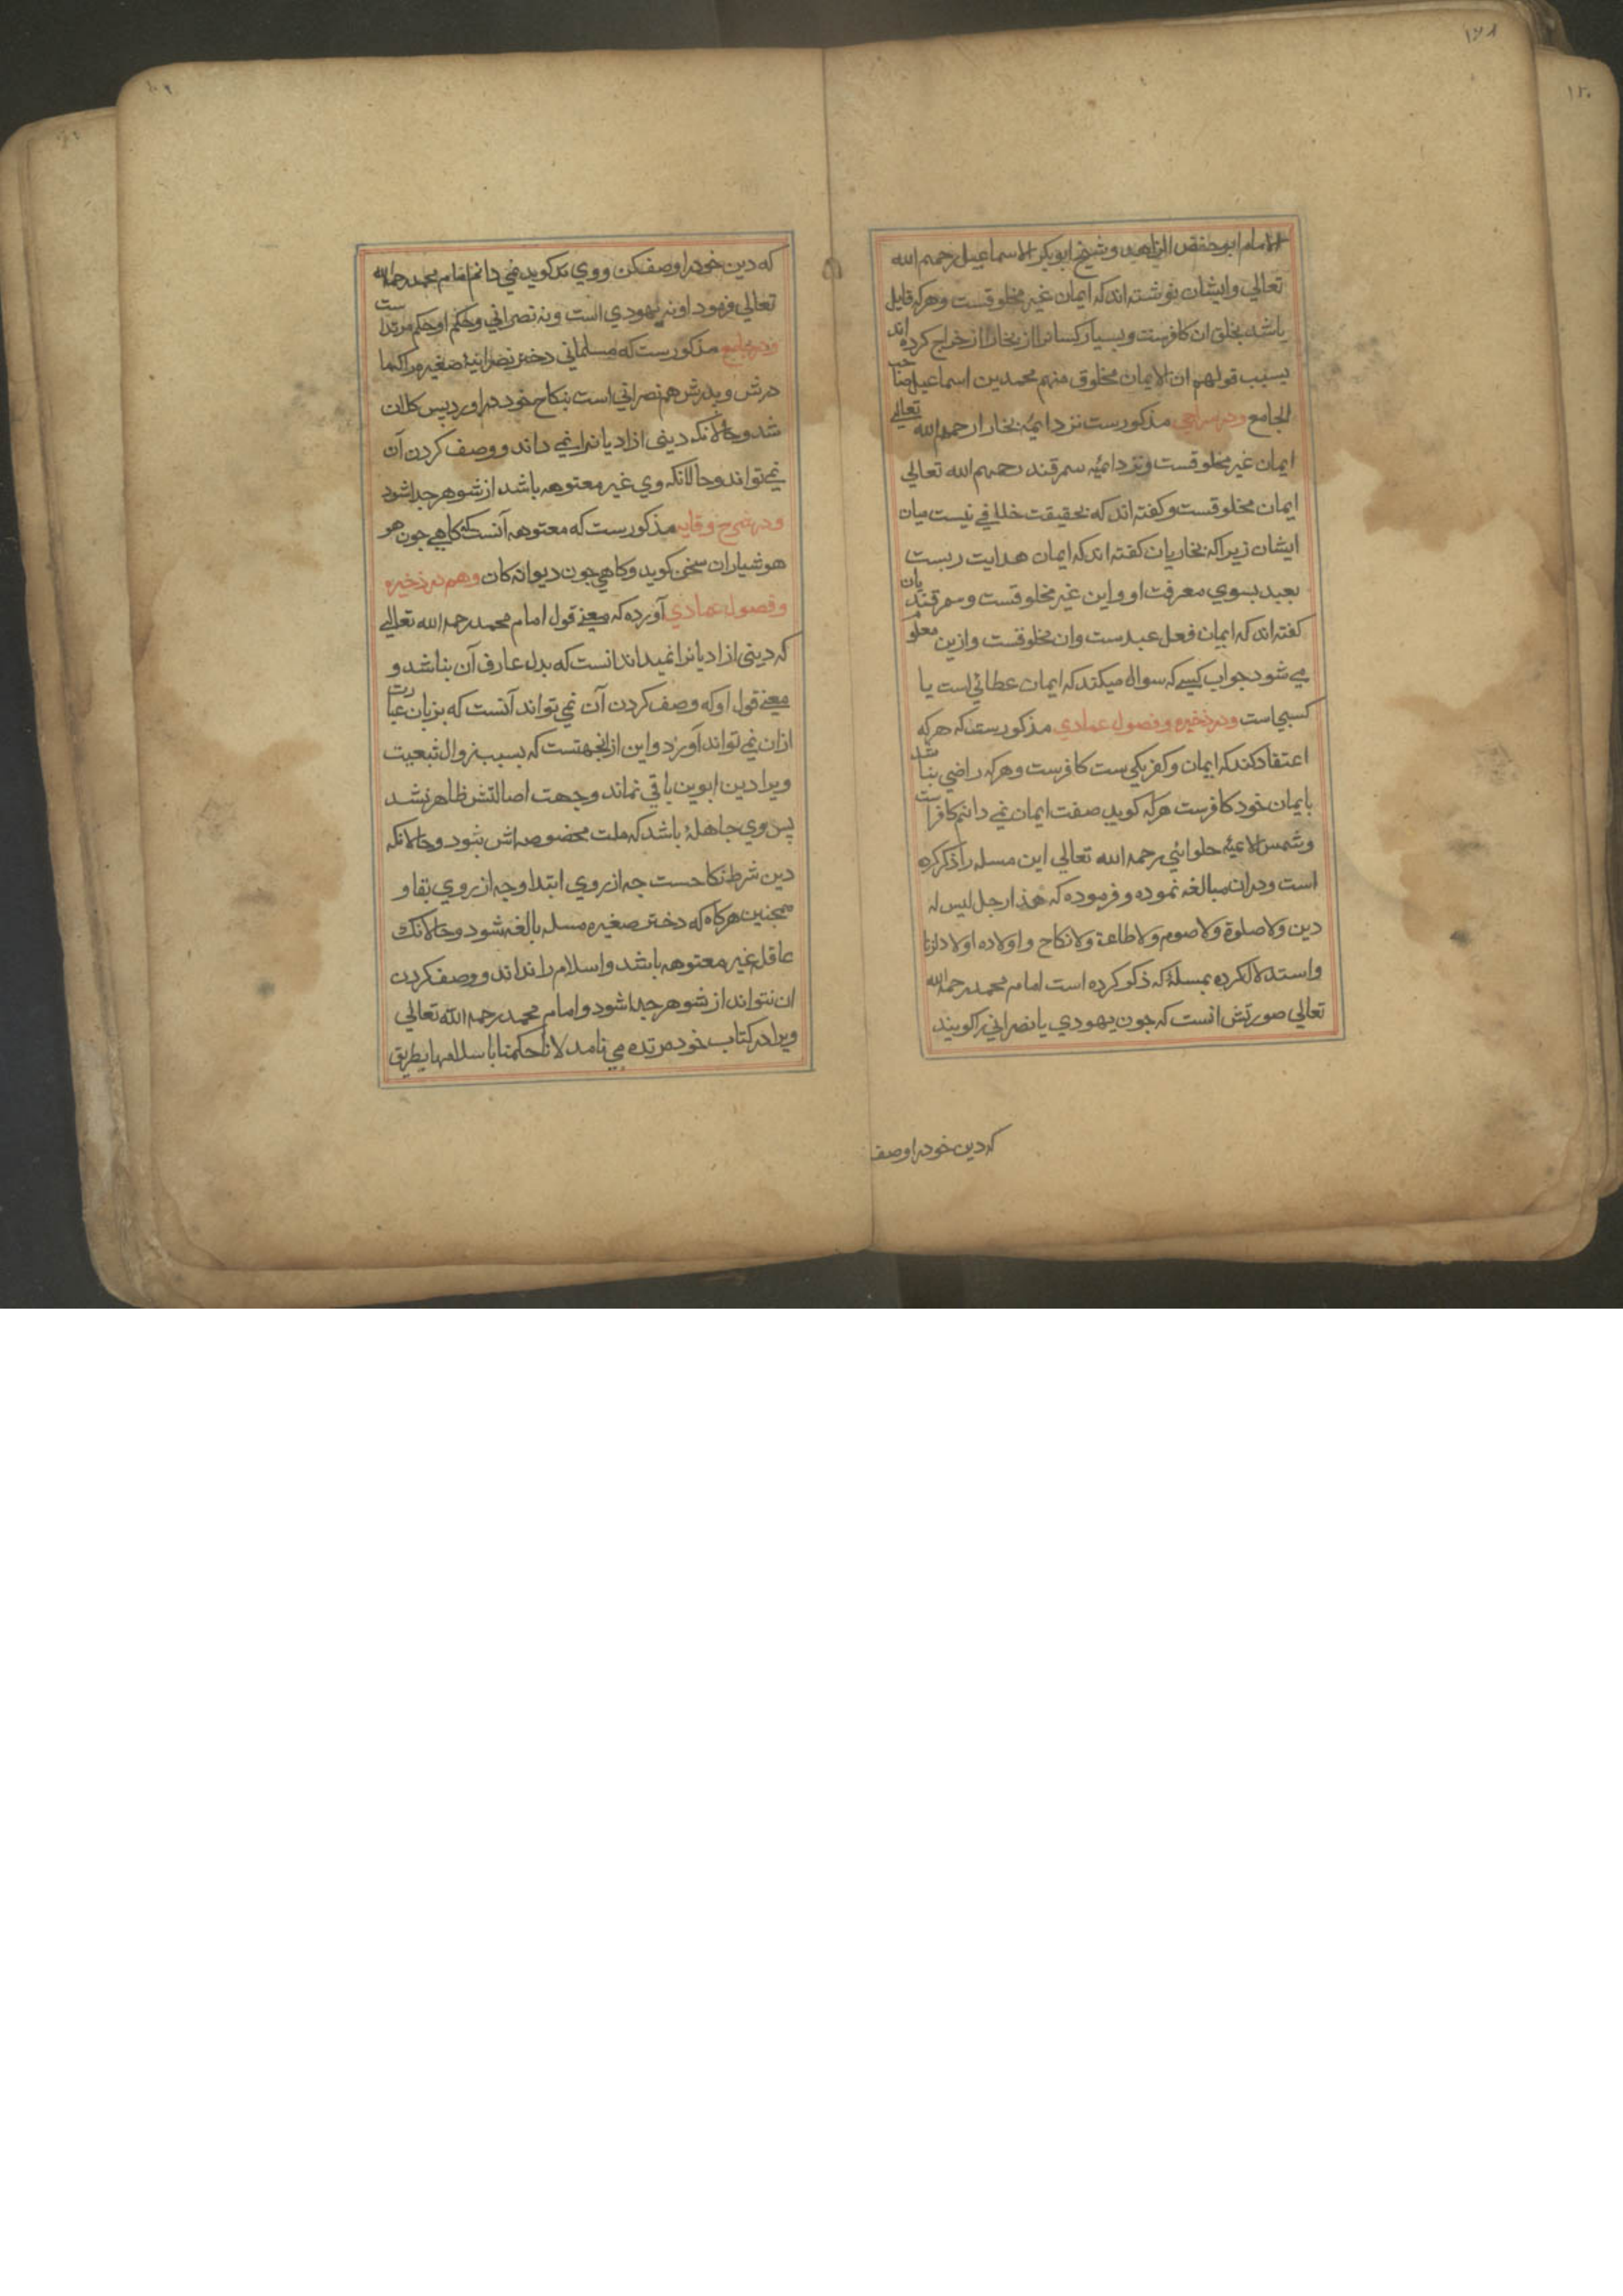 ۱۲۸
الامام ابوحفص الزاهد وشیخ ابوبکر الاسماعیل رحمهم الله
تعالی وایشان نوشته اند که ایمان غیر مخلوقست وهرکه قایل
باشد بخلق ان کافرست وبسیار کسانرا از بخارا اخراج کرده اند
بسبب قولهم ان الایمان مخلوق منهم محمد بن اسماعیل صاحب
الجامع ودر سراجی مذکورست نزد ائمه بخارا رحمهم الله تعالی
ایمان غیر مخلوقست ونزد ائمه سمرقند رحمهم الله تعالی
ایمان مخلوقست وکفته اند که بحقیقت خلافی نیست میان
ایشان زیراکه بخاریان کفته اند که ایمان هدایت ربست
بعبد بسوی معرفت او واین غیر مخلوقست وسمرقندیان
کفته اند که ایمان فعل عبدست وان مخلوقست وازین معلوم
می شود جواب کسی که سوال میکند که ایمان عطائی است یا
کسبی است ودر ذخیره وفصول عمادی مذکورست که هرکه
اعتقاد کند که ایمان وکفر یکی ست کافرست وهرکه راضی نباشد
بایمان خود کافرست هرکه کوید صفت ایمان نمی دانم کافراست
وشمس الائمه حلوائی رحمه الله تعالی این مسله را ذکر کرده
است ودران مبالغه نموده وفرموده که هذا رجل لیس له
دین ولا صلوة ولا صوم ولا طاعة ولا نکاح واولاده اولاد الزنا
واستدلال کرده بمسلهٔ که ذکر کرده است امام محمد رحمه الله
تعالی صورتش انست که جون یهودی یا نصرانی را کویند
که دین خود را وصف
که دین خود را وصف کن ووی کوید نمی دانم امام محمد رحمه الله
تعالی فرمود او نه یهودی است ونه نصرانی وحکم او حکم مرتد است
ودر جامع مذکورست که مسلمانی دختر نصرانیهٔ صغیره را که ما
درش وپدرش هم نصرانی است بنکاح خود دراورد پس کلان
شد وحالانکه دینی از ادیانرا نمی داند ووصف کردن آن
نمی تواند وحالانکه وی غیر معتوهه باشد از شوهر جدا شود
ودر شرح وقایه مذکورست که معتوهه آنست که کاهی جون هو
هوشیاران سخن کوید وکاهی جون دیوانه کان وهم در ذخیره
وفصول عمادی آورده که معنی قول امام محمد رحمه الله تعالی
که دینی از ادیانرا نمیداند انست که بدل عارف آن نباشد و
معنی قول او که وصف کردن آن نمی تواند آنست که بزبان عبارت
ازان نمی تواند آورد واین ازانجهتست که بسبب زوال تبعیت
ویرا دین ابوین باقی نماند وجهت اصالتش ظاهر نشد
پس وی جاهلهٔ باشد که ملت مخصوصه اش نبود وحالانکه
دین شرط نکاحست جه از روی ابتدا وجه از روی بقا و
همجنین هرکاه که دختر صغیره مسله بالغه شود وحالانک
عاقل غیر معتوهه باشد واسلام را نداند ووصف کردن
ان نتواند از شوهر جدا شود وامام محمد رحمه الله تعالی
ویرا در کتاب خود مرتده می نامد لانا حکمنا باسلامها بطریق